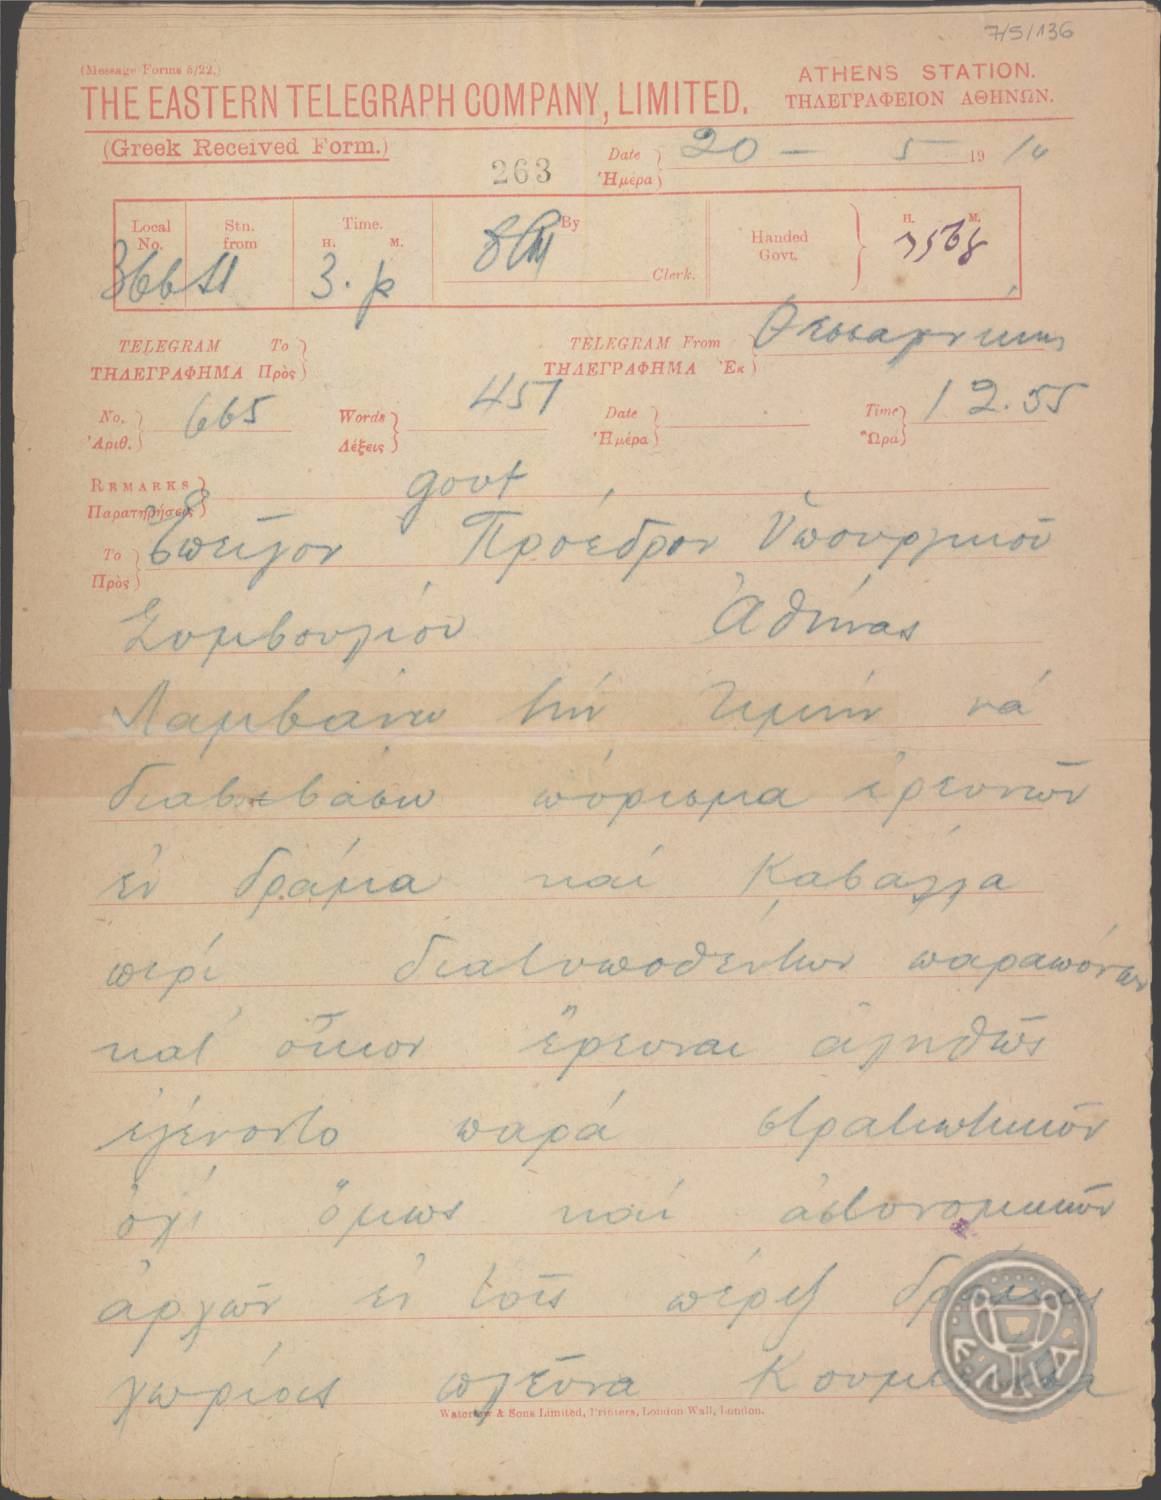 7/5/136
(Message Forms 5/22.)
THE EASTERN TELEGRAPH COMPANY, LIMITED.
ATHENS STATION.
ΤΗΛΕΓΡΑΦΕΙΟΝ ΑΘΗΝΩΝ.
(Greek Received Form.)
263
Date Ἡμέρα 20 - 5 19
Local No. Stn. from Time. H. M. By Clerk. Handed Govt. H. M.
366 3. p
TELEGRAM To TELEGRAM From
ΤΗΛΕΓΡΑΦΗΜΑ Πρὸς ΤΗΛΕΓΡΑΦΗΜΑ Ἐκ Θεσσαλονίκης
No. Ἀριθ. 665 Words Λέξεις 457 Date Ἡμέρα Time Ὥρα 12.55
REMARKS Παρατηρήσεις govt
To Πρὸς Ἐπεῖγον Πρόεδρον Ὑπουργικοῦ
Συμβουλίου Ἀθήνας
Λαμβάνω τήν τιμήν νά
διαβιβάσω πόρισμα ἐρευνῶν
ἐν δράμα καί Καβάλλα
περί διατυποθέντων παραπόνων
κατ' οἶκον ἔρευναι ἀληθῶς
ἐγένοντο παρά στρατιωτικῶν
ὀχι ὅμως καί ἀστυνομικῶν
ἀρχῶν ἐν τοῖς πέριξ δράμας
χωρίοις πλεῦνα
Waterlow & Sons Limited, Printers, London Wall, London.
ΕΛΙΑ